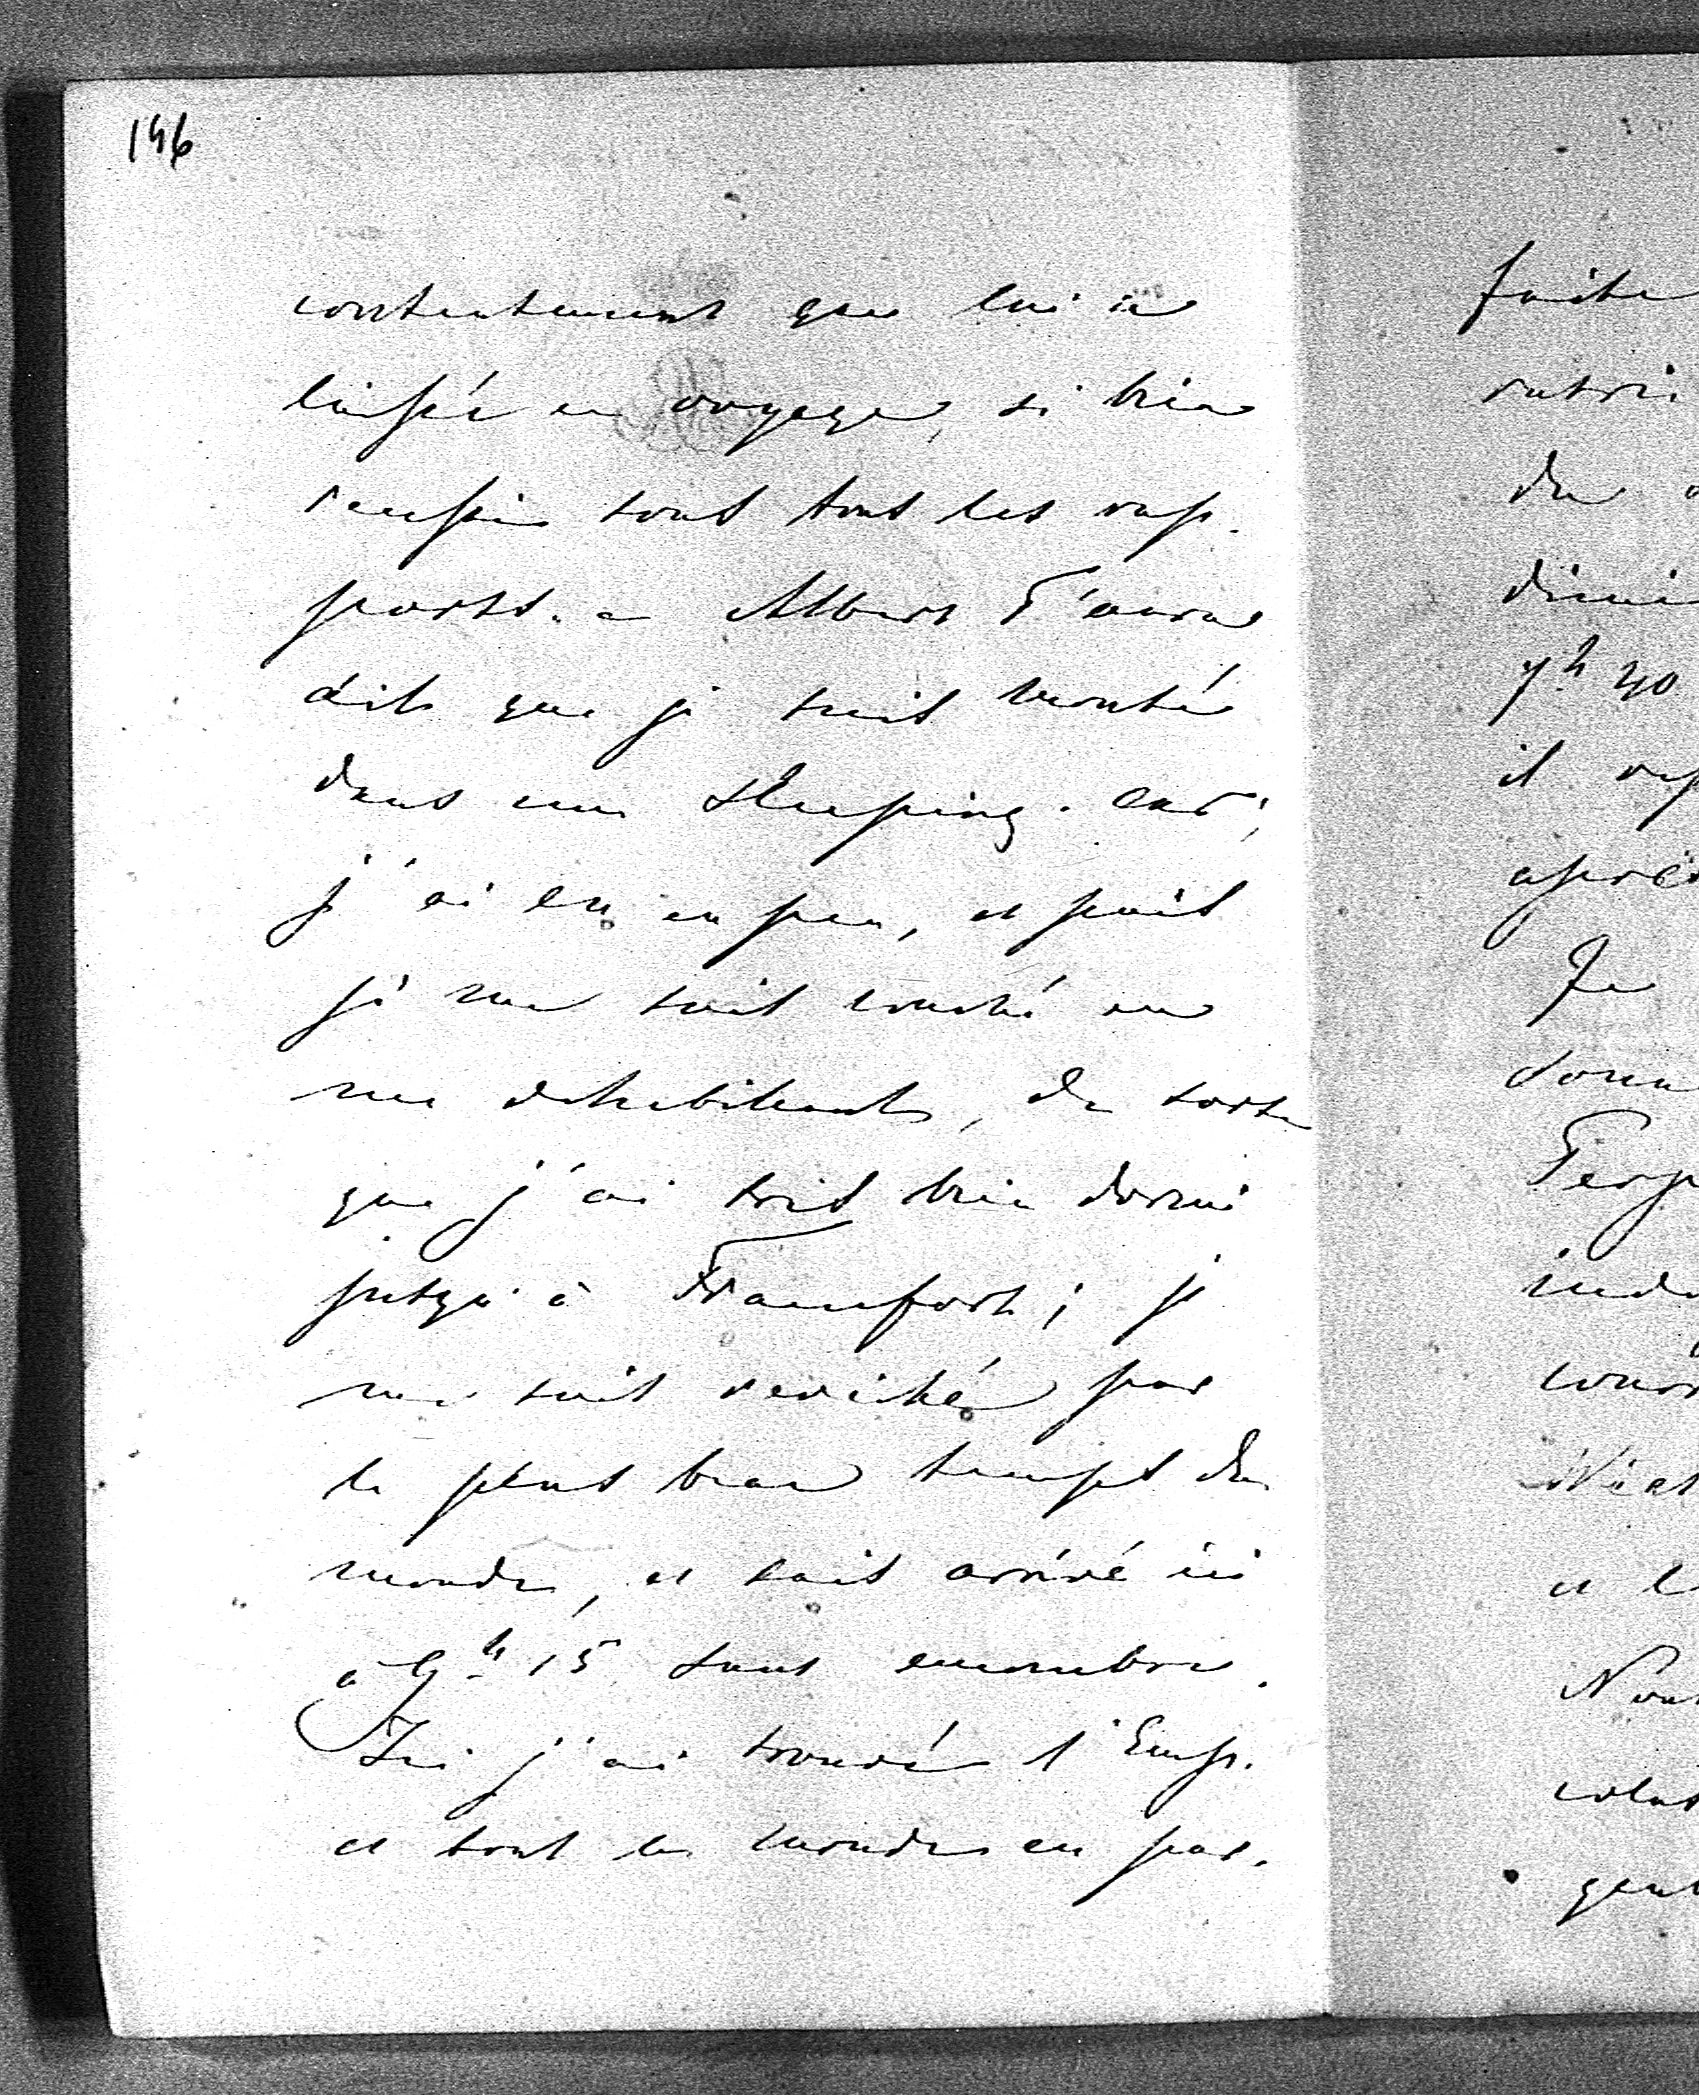 146
contentement que lui a
laissé ce voyage, si bien
reussi sous tous les rap-
ports. - Albert t'aura
dit que je suis monté
dans un sleeping-car;
j'ai lu un peu, et puis
je me suis couché en
me deshabillant, de sorte
que j'ai très bien dormi
jusqu'à Francfort; je
me suis reveillé par
le plus beau temps du
monde, et suis arrivé ici
à 9h 15 sans encombre.
Ici j'ai trouvé l'Emp.
et tout le monde en par-
faite
du
7h 40
il
après
Je
et